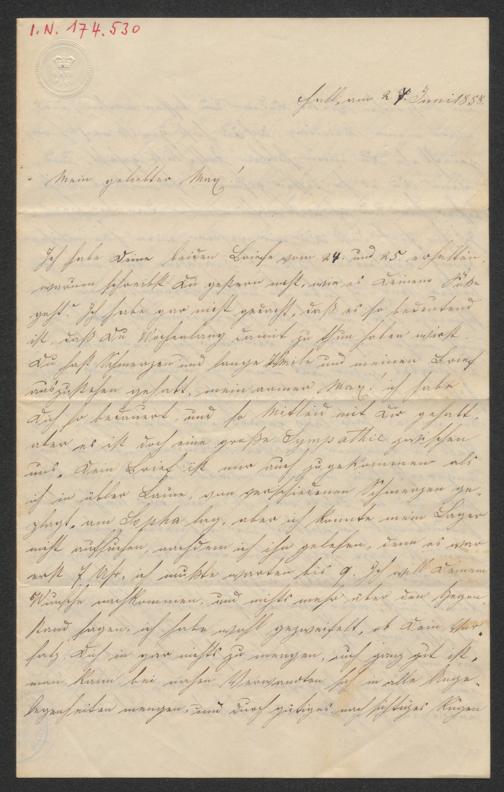 I.N. 174.530
Hall, am 27. Juni 1858.
Mein geliebter Max!
Ich habe Deine beiden Briefe vom 24. und 25. erhalten,
warum schreibst Du gestern nicht, wie es Deinem Fuße
geht? Ich habe gar nicht gedacht, daß es so bedeutend
ist, daß Du Wochenlang damit zu thun haben wirst.
Du hast Schmerzen und lange Weile und meinen Brief
auszustehen gehabt, mein armer Max! ich habe
Dich so bedauert, und so Mitleid mit Dir gehabt,
aber es ist doch eine große Sympathie zwischen
uns. Dein Brief ist mir auch zugekommen als
ich in übler Laune, von verschiedenen Schmerzen ge-
plagt, am Sopha lag, aber ich konnte mein Lager
nicht aufsuchen, nachdem ich ihn gelesen, denn es war
erst 7 Uhr, ich mußte warten bis 9. Ich will Deinem
Wunsche nachkommen, und nichts mehr über den Gegen-
stand sagen, ich habe wohl gezweifelt, ob Dein Vor-
satz Dich in gar nichts zu mengen, auch ganz gut ist,
man kann bei nahen Verwandten sich in alle Ange-
legenheiten mengen, und durch gütiges nachsichtiges Rügen